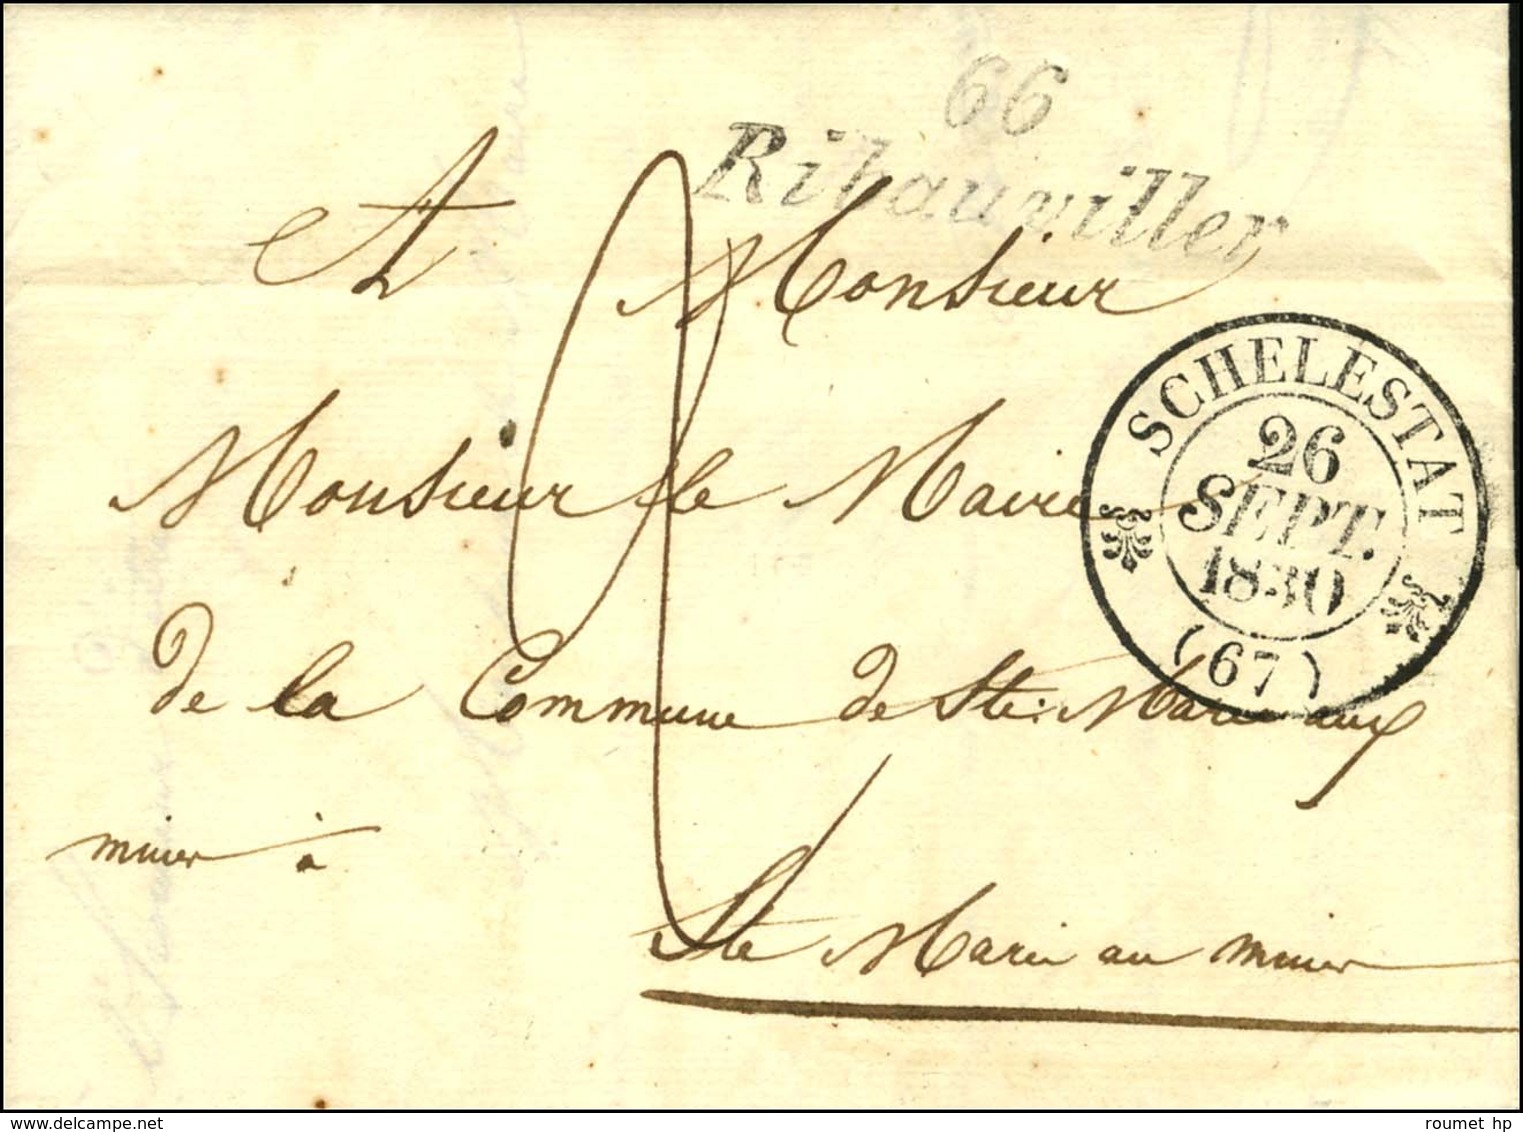 66
Ribauviller
A Monsieur
SCHELESTAT
26
SEPT.
1830
(67)
Monsieur le Maire
de la Commune de Ste. Marie aux
mines à
Ste Marie au mines
roumet hp